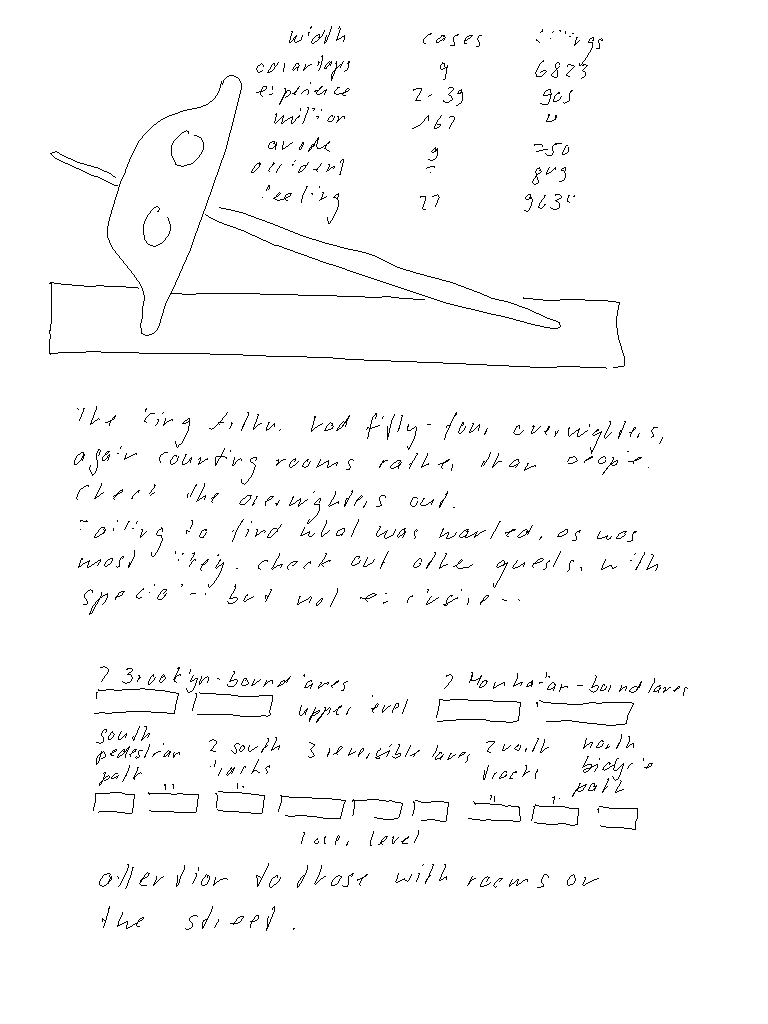 width cases
6823
experience 905
million 167 "
anode 9
accident 849
feeling
The King Arthur had fifty-four overnighters,
again counting rooms rather than people.
Check the overnighters out.
Failing to find what was wanted, as was
most likely, check out other guests, with
special but not exclusive
2 Brooklyn-bound lanes 2 Manhattan-bound lanes
upper level
south pedestrian path 2 south tracks 3 reversible lanes 2 north tracks north bicycle path
lower level
attention to those with rooms on
the street.